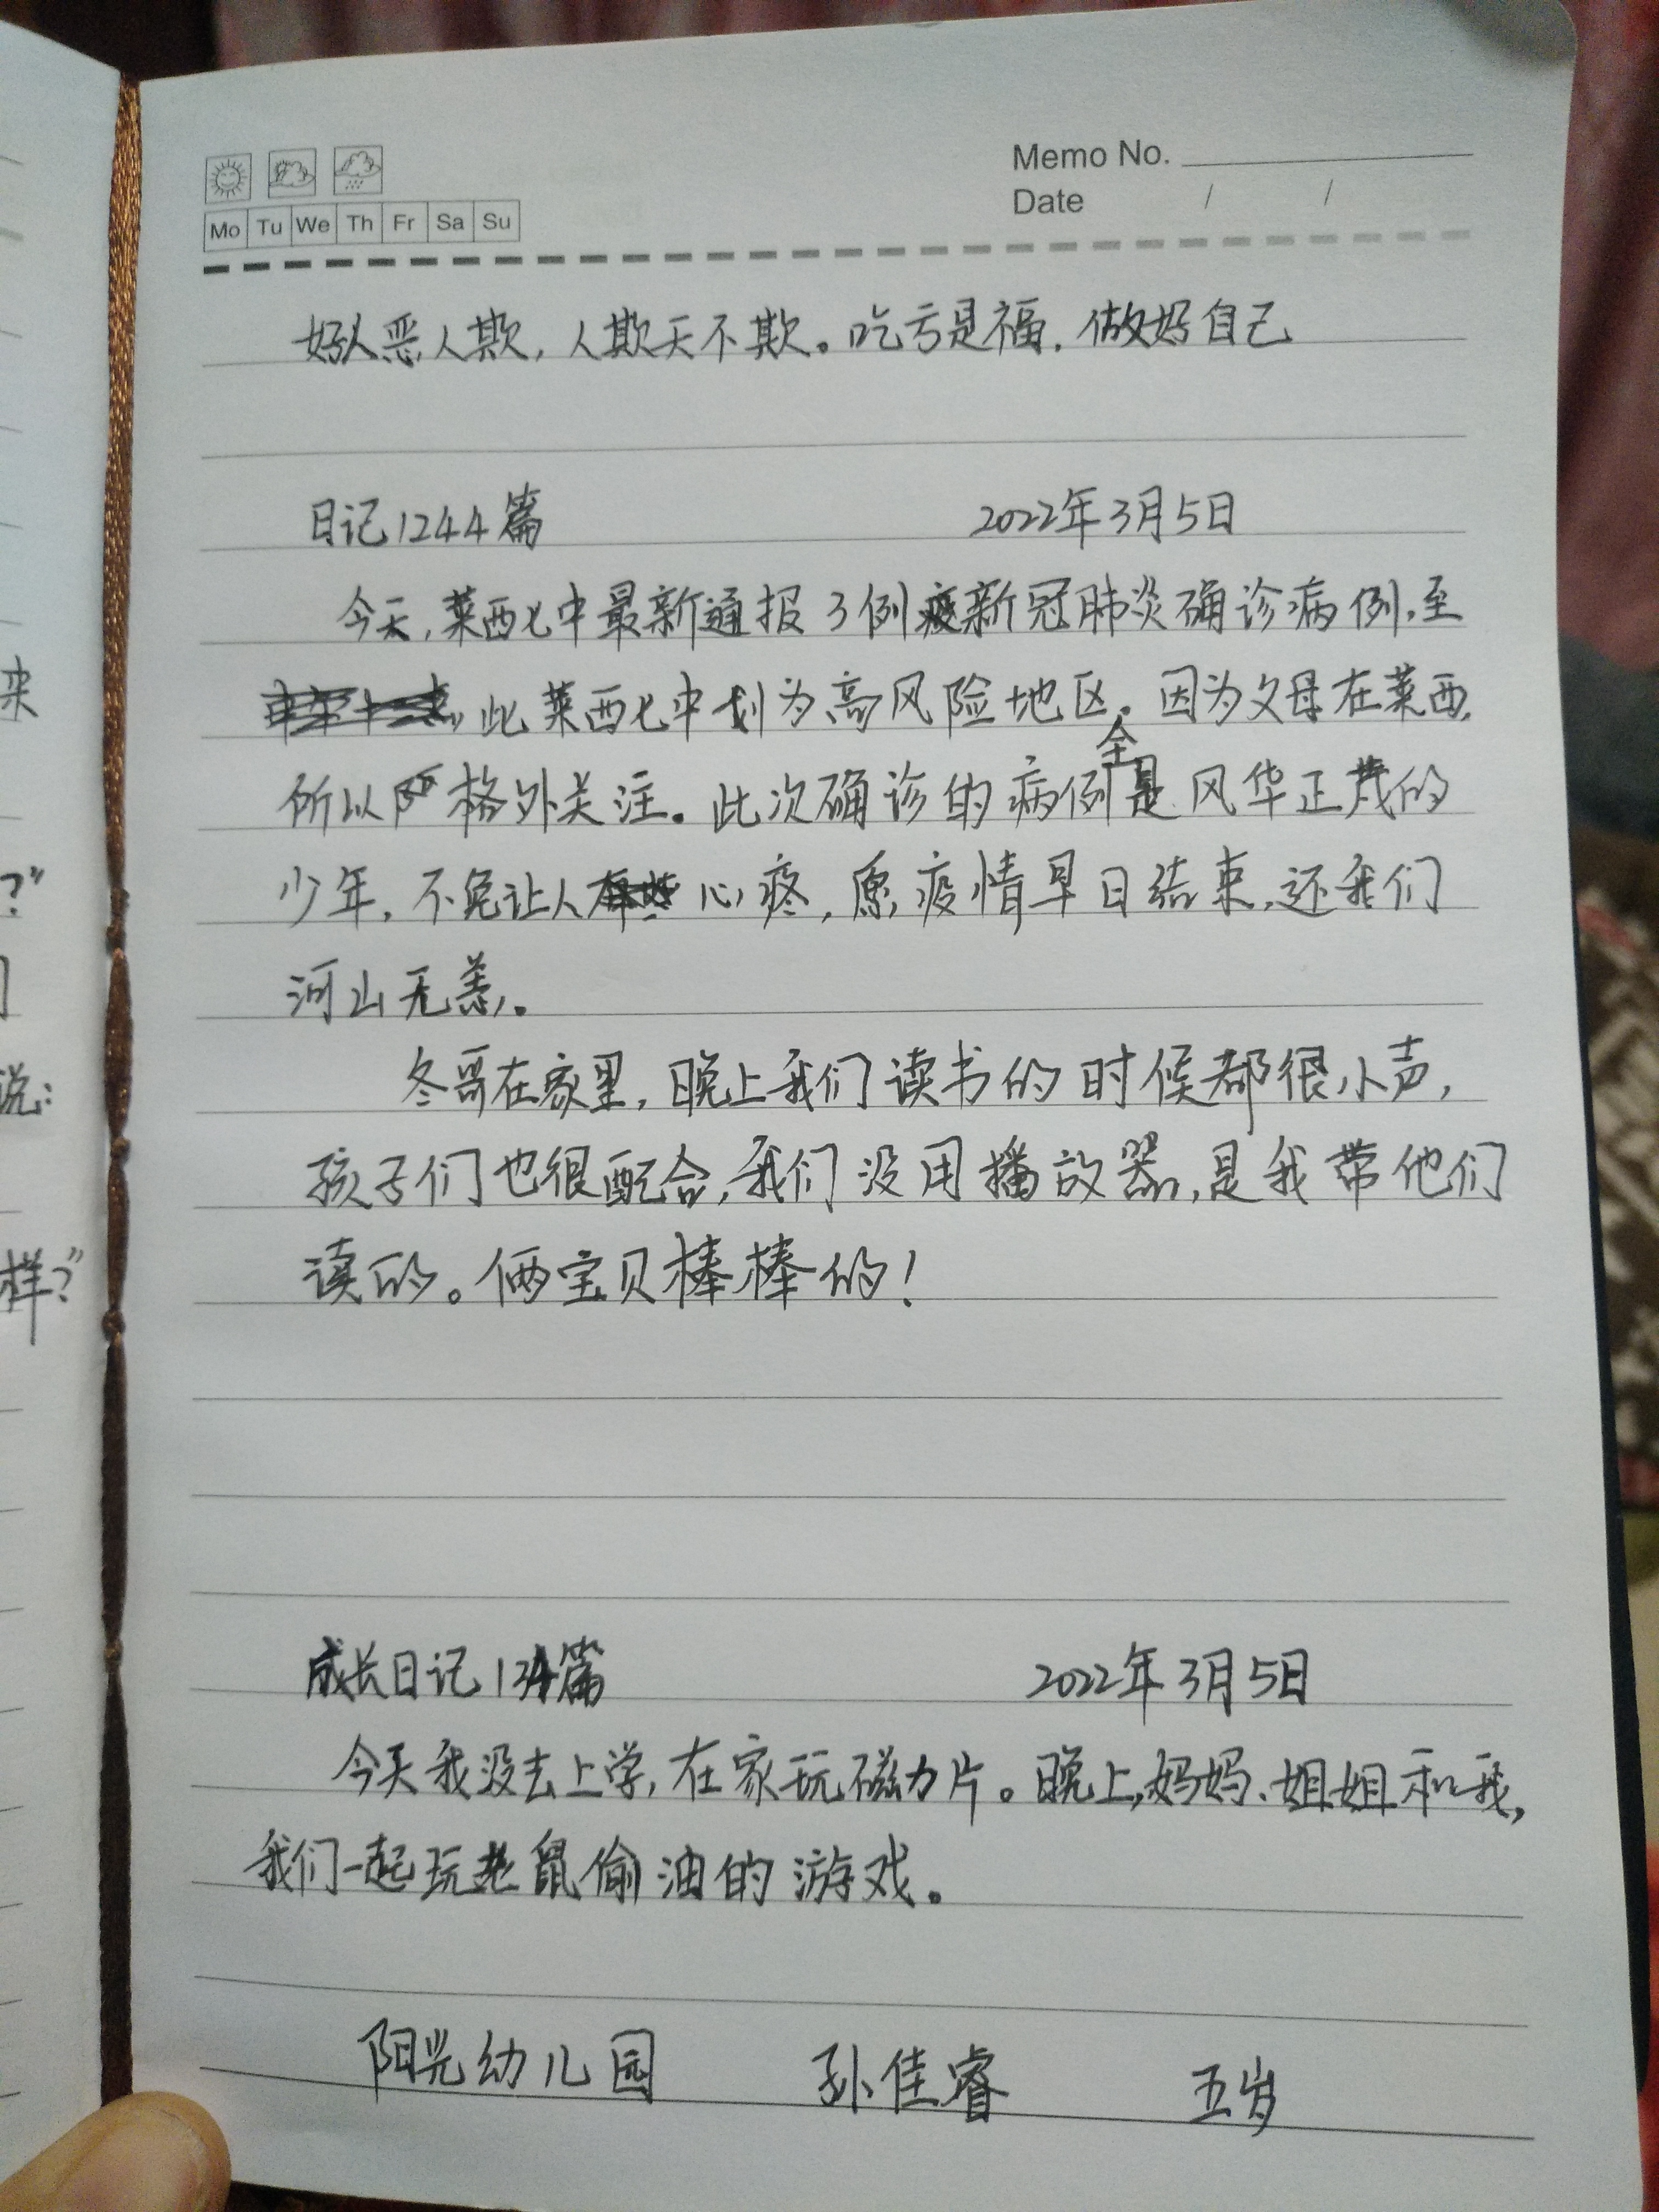 Memo No.
Mo Tu We Th Fr Sa Su
Date / /
好人恶人欺，人欺天不欺。吃亏是福，做好自己
日记1244篇 2022年3月5日
今天，莱西七中最新通报3例新冠肺炎确诊病例，至
此莱西七中划为高风险地区。因为父母在莱西，
所以严格外关注。此次确诊的病例全是风华正茂的
少年，不免让人心疼，愿疫情早日结束，还我们
河山无恙。
冬哥在家里，晚上我们读书的时候都很小声，
孩子们也很配合，我们没用播放器，是我带他们
读的。俩宝贝棒棒的！
成长日记 篇 2022年3月5日
今天我没去上学，在家玩磁力片。晚上，妈妈、姐姐和我，
我们一起玩老鼠偷油的游戏。
阳光幼儿园 孙佳睿 五岁
来
?”
们
说：
样？”